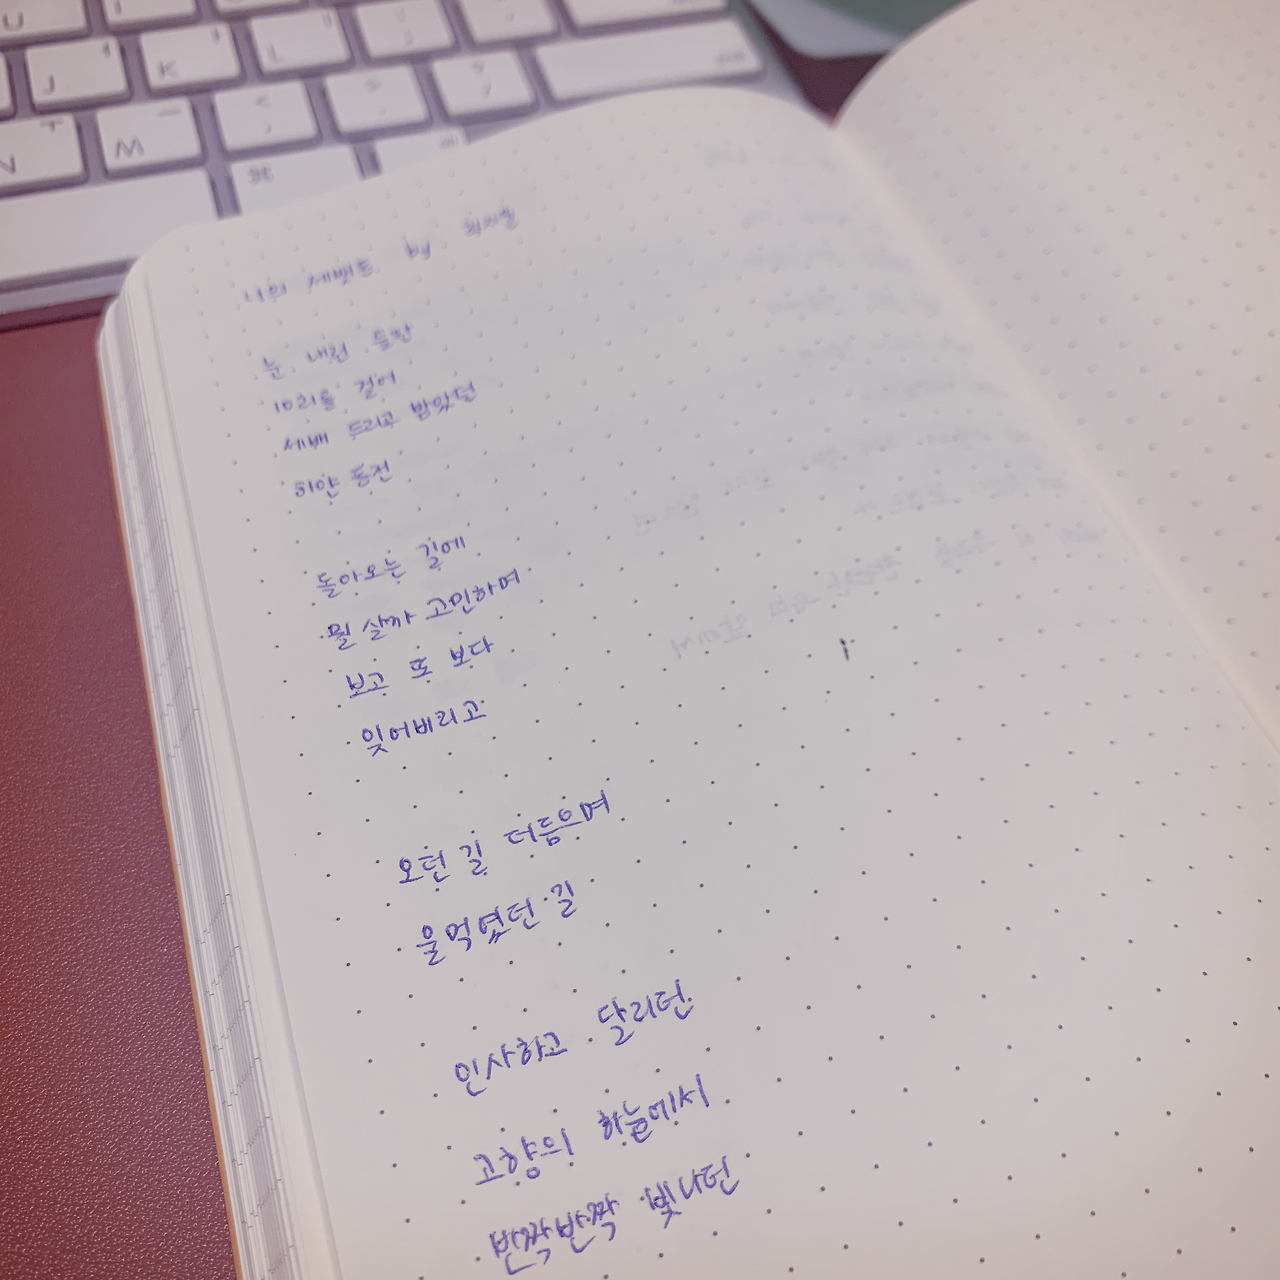 U
J K L
N M
⌘
나의 세뱃돈 by
눈 내린 들판
10리를 걸어
세배 드리고 받았던
하얀 동전
돌아오는 길에
뭘 살까 고민하며
보고 또 보다
잊어버리고
오던 길 더듬으며
울먹였던 길
인사하고 달리던
고향의 하늘에서
반짝반짝 빛나던